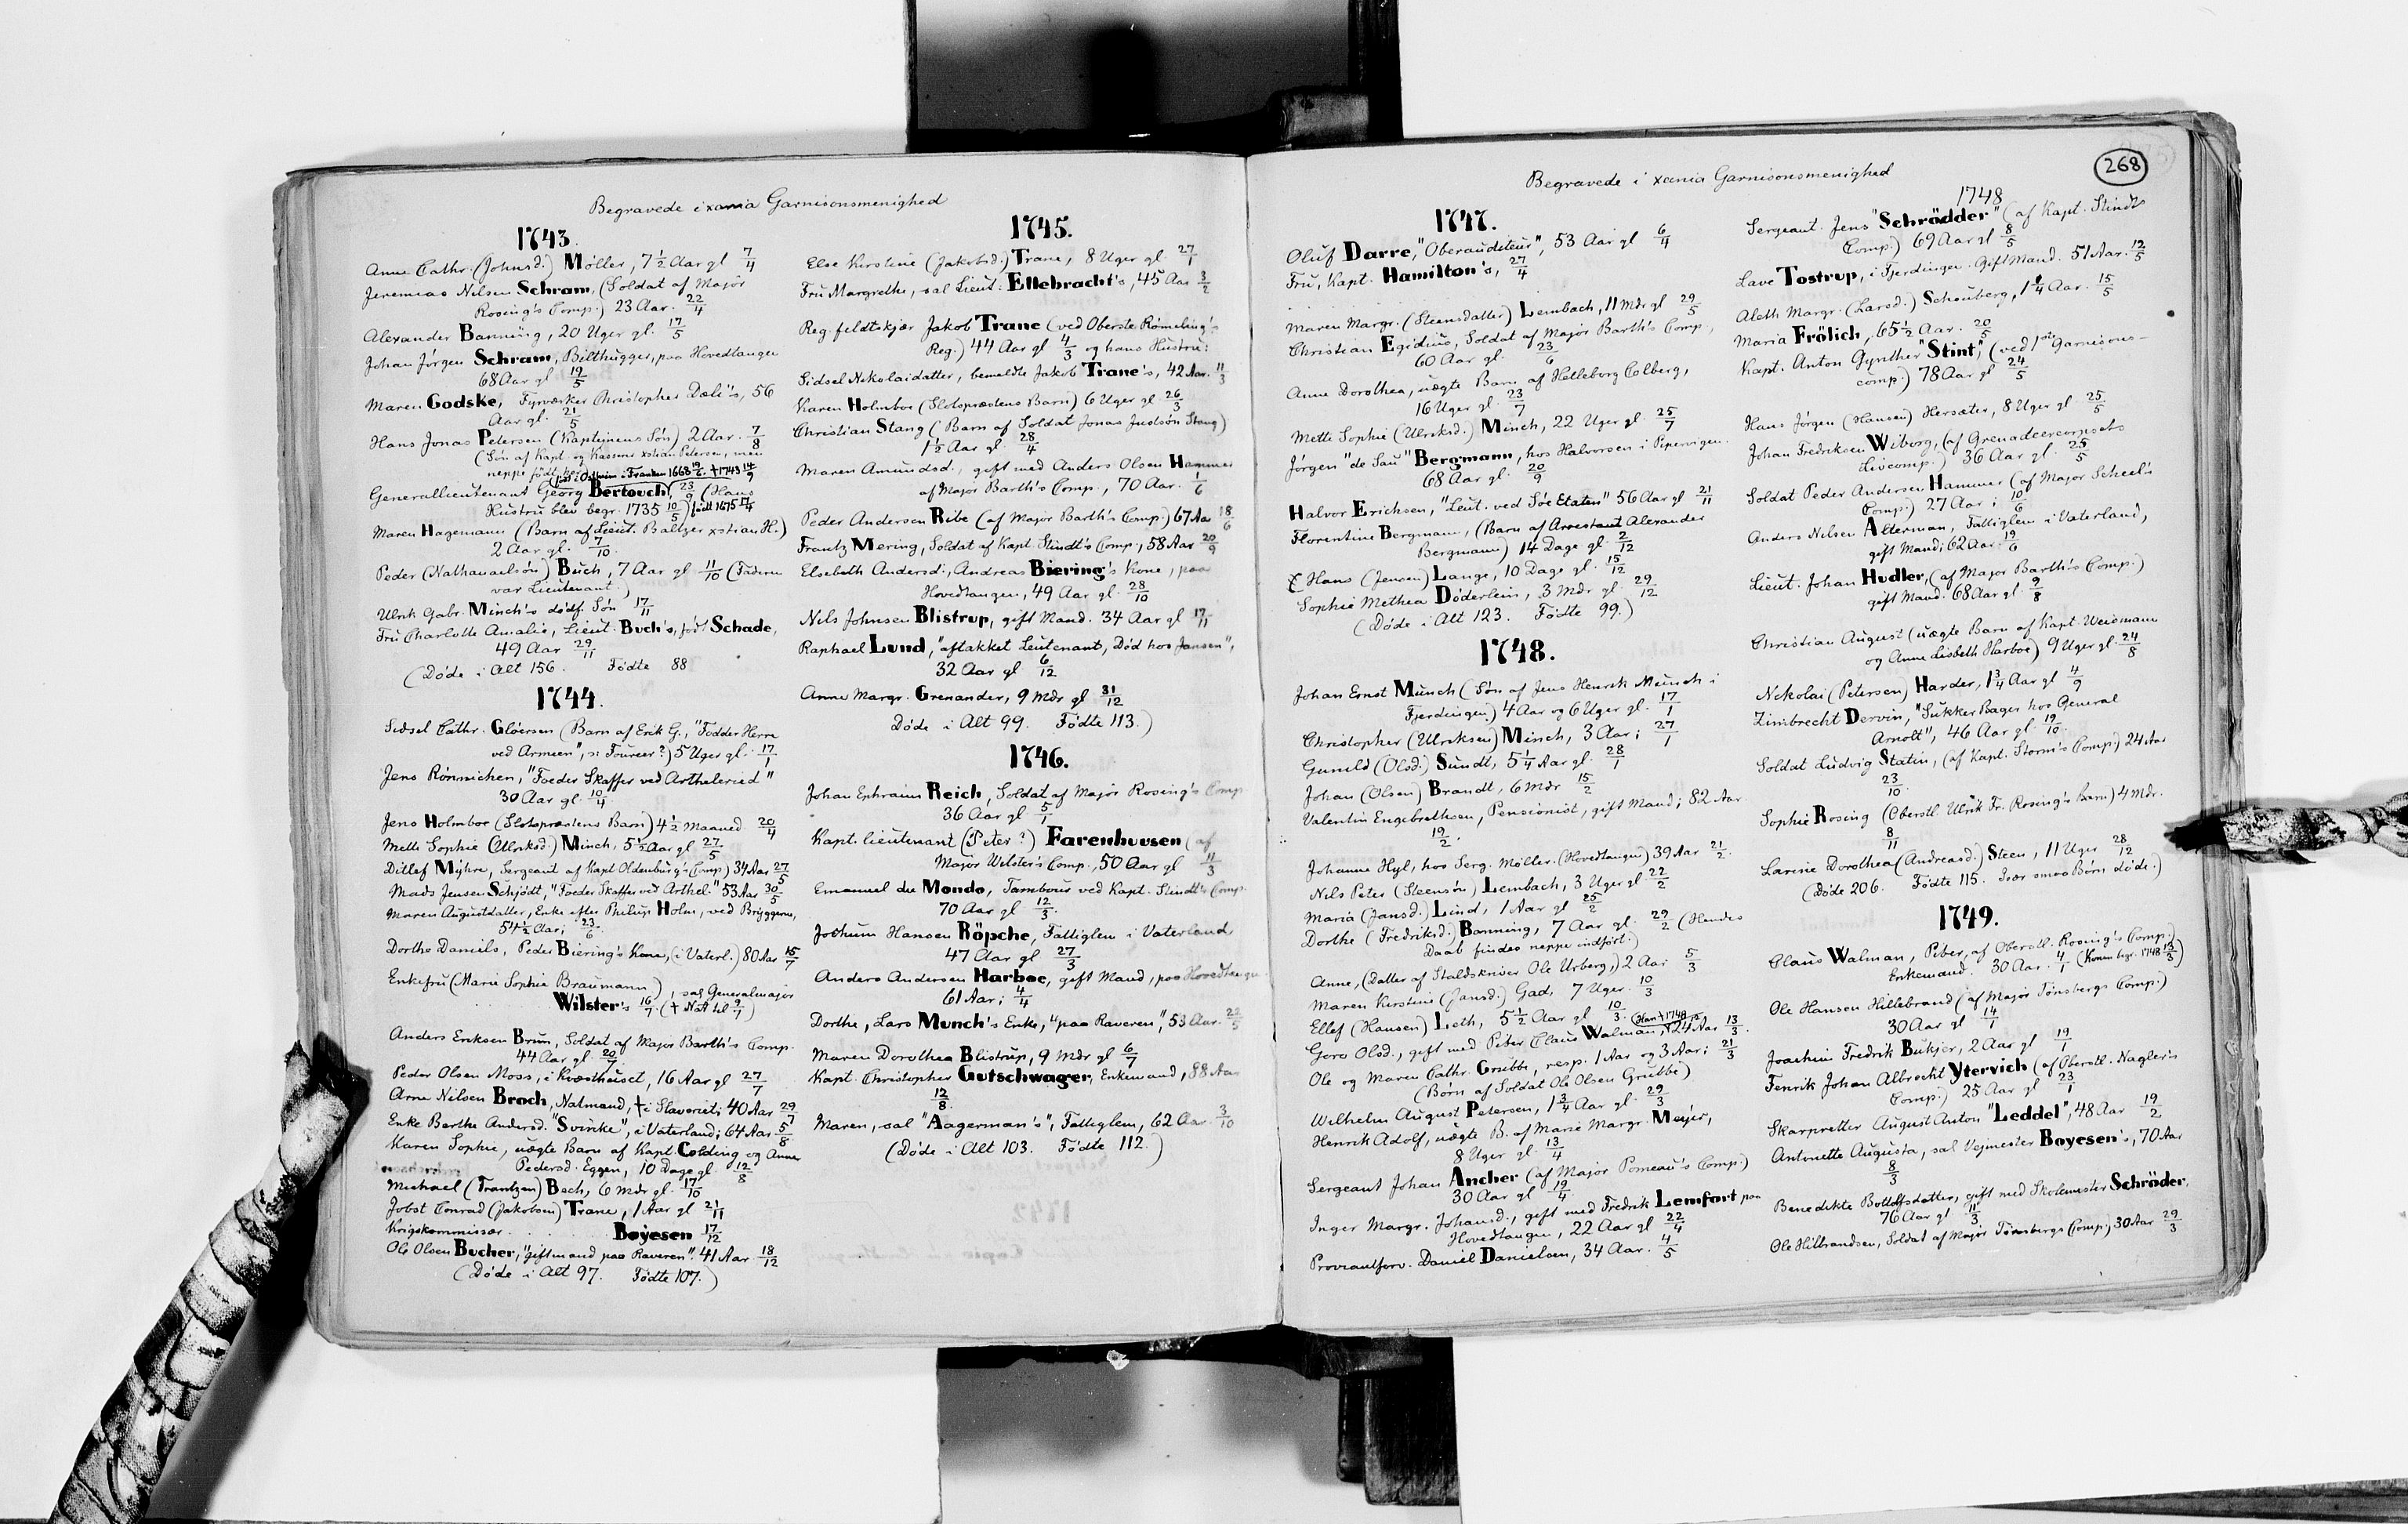 Begravede i xania Garnisonsmenighed
1743.
Anne Cathr. (Johnsd.) Møller, 7½ Aar gl 7/4
Jeremias Nilsen Schram, (Soldat af Major
Rosing's Comp.) 23 Aar. 22/4
Alexander Banning, 20 Uger gl. 17/5
Johan Jørgen Schram, Bilthugger, paa Hovedtangen
68 Aar gl 19/5
Maren Godske, Fyrværker Christopher Dæli's, 56
Aar gl. 21/5
Hans Jonas Petersen (Kapteinens Søn) 2 Aar. 7/8
(Søn af Kapt. og Kasserer xstian Petersen, men
neppe født her)
Generallieutenant Georg Bertouch, 23/9 (Hans
Hustru blev begr. 1735 10/5) født 1675 17/4
Maren Hagemann (Barn af Lieut. Baltzer xstian H.)
2 Aar gl. 7/10.
Peder (Nathanaelsøn) Buch, 7 Aar gl 11/10 (Faderen
var Lieutenant.)
Ulrik Gabr. Minch's dødf. Søn 17/11
Fru Charlotte Amalie, Lieut. Buch's, født Schade,
49 Aar 29/11
(Døde i Alt 156. Fødte 88
1744.
Sidsel Cathr. Gløersen (Barn af Erik G., "Fodder Herre
ved Armeen", ɔ: Fourer?) 5 Uger gl. 17/1
Jens Rønnichen, "Foeder Skaffer ved Artheleried"
30 Aar gl. 10/4
Jens Holmboe (Slotsprestens Barn) 4½ Maaned 20/4
Mette Sophie (Ulriksd.) Minch, 5½ Aar gl 27/5
Ditlef Myhre, Sergeant af Kapt Oldenburg's Comp.) 34 Aar 27/5
Mads Jensen Schjødt, "Foeder Skaffer ved Arthel." 53 Aar 30/5
Maren Augustdatter, Enke efter Philip Holm, ved Bryggerne,
54½ Aar; 23/6.
Dorthe Daniels, Peder Biering's Kone, (i Vaterl.) 80 Aar 15/7
Enkefru (Marie Sophie Braumann), sal Generalmajor
Wilster's 16/7. († Nat til 9/7)
Anders Eriksen Brun, Soldat af Major Barth's Comp.
44 Aar gl. 20/7
Peder Olsen Moss, i Kvæsthuset, 16 Aar gl 27/7
Arne Nilsen Broch, Natmand, † i Slaveriet; 40 Aar 29/7
Enke Berthe Andersd. "Svinke", i Vaterland; 64 Aar 5/8
Karen Sophie, uægte Barn af Kapt. Colding og Anne
Pedersd. Eggen, 10 Dage gl. 12/8
Michael (Frantzen) Bech, 6 Mdr gl. 17/10
Jobst Conrad (Jakobsen) Trane, 1 Aar gl 21/11
Krigskommissær . . . . Bøyesen 17/12
Ole Olsen Bucher, "giftmand paa Raveren". 41 Aar 18/12
(Døde i Alt 97. Fødte 107.)
1745.
Else Kirstine (Jakobsd.) Trane, 8 Uger gl. 27/1
Fru Margrethe, sal Lieut. Ellebracht's, 45 Aar 3/2
Reg. feldtskjær Jakob Trane (ved Oberste Rømeling's
Reg.) 44 Aar gl 4/3 og hans Hustru:
Sidsel Nikolaidatter, bemeldte Jakob Trane's, 42 Aar. 11/3
Karen Holmboe (Slotsprestens Barn) 6 Uger gl 26/3
Christian Stang (Barn af Soldat Jonas Judsøn Stang)
1½ Aar gl. 28/4
Maren Amundsd., gift med Anders Olsen Hammer
af Major Barth's Comp., 70 Aar. 1/6
Peder Andersen Ribe (af Major Barth's Comp.) 67 Aar 18/6
Frantz Mering, Soldat af Kapt. Stindt's Comp., 58 Aar 20/9
Elsebeth Andersd., Andreas Biering's Kone, paa
Hovedtangen, 49 Aar gl. 28/10
Nils Johnsen Blistrup, gift Mand. 34 Aar gl 17/11
Raphael Lund, "aftakket Leutenant, Død hos Jansen",
32 Aar gl 6/12
Anne Margr. Grenander, 9 Mdr gl 31/12
Døde i Alt 99. Fødte 113.)
1746.
Johan Ephraim Reich, Soldat af Major Rosing's Comp.
36 Aar gl 5/1
Kapt. lieutenant (Peter?) Farenhuusen (af
Major Wilster's Comp., 50 Aar gl 11/3
Emanuel du Mondo, Tambour ved Kapt. Stindt's Comp.
70 Aar gl 12/3.
Jochum Hansen Röpche, Fattiglem i Vaterland,
47 Aar gl 27/3
Anders Andersen Harboe, gift Mand, paa Hovedtangen
61 Aar; 4/4
Dorthe, Lars Munch's Enke, "paa Raveren", 53 Aar. 22/5
Maren Dorothea Blistrup, 9 Mdr gl 6/7
Kapt. Christopher Gutschwager, Enkemand, 88 Aar
12/8.
Maren, sal "Aagerman's", Fattiglem, 62 Aar 3/10
(Døde i Alt 103. Fødte 112.)
268
Begravede i xania Garnisonsmenighed
1747.
Oluf Darre, "Oberauditeur", 53 Aar gl 6/4
Fru, Kapt. Hamilton's, 27/4
Maren Margr. (Steensdatter) Lembach, 11 Mdr gl 29/5
Christian Egidius, Soldat af Major Barth's Comp,
60 Aar gl. 23/6
Anne Dorothea, uægte Barn af Helleborg Colberg,
16 Uger gl. 23/7
Mette Sophie (Ulriksd.) Minch, 22 Uger gl. 25/7
Jørgen "de Sau" Bergmann, hos Halvorsen i Pipervigen.
68 Aar gl. 20/9
Halvor Erichsen, "Leut. ved Söe Etaten" 56 Aar gl 21/11
Florentine Bergmann, (Barn af Arrestant Alexander
Bergmann) 14 Dage gl. 2/12
Hans (Jensen) Lange, 10 Dage gl. 15/12
Sophie Methea Døderlein, 3 Mdr gl 29/12
(Døde i Alt 123. Fødte 99.)
1748.
Johan Ernst Münch (Søn af Jens Henrik Münch i
Fjerdingen) 4 Aar og 6 Uger gl. 17/1
Christopher (Ulriksen) Minch, 3 Aar; 27/1
Gunild (Olsd.) Sundt, 5¼ Aar gl. 28/1
Johan (Olsen) Brandt, 6 Mdr 15/2
Valentin Engebrethsen, Pensionist, gift Mand; 82 Aar
19/2.
Johanne Hyl, hos Serg. Møller. (Hovedtangen) 39 Aar 21/2.
Nils Peter (Steensøn) Lembach, 3 Uger gl 22/2
Maria (Jansd.) Lind, 1 Aar gl 25/2
Dorthe (Fredriksd.) Banning, 7 Aar gl. 29/2 (Hendes
Daab findes neppe indført.)
Anne, (Datter af Staldskriver Ole Urberg,) 2 Aar 5/3
Maren Kirstine (Jansd.) Gad, 7 Uger. 10/3
Ellef (Hansen) Lieth, 5½ Aar gl 10/3.
Goro Olsd., gift med Piber Claus Walman, 24 Aar 13/3.
Ole og Maren Cathr. Grubbe, resp. 1 Aar og 3 Aar; 21/3
(Børn af Soldat Ole Olsen Grubbe)
Wilhelm August Petersen, 1¾ Aar gl. 29/3
Henrik Adolf, uægte B. af Marie Margr. Meyer,
8 Uger gl. 13/4
Sergeant Johan Ancher (af Major Pomeau's Comp.)
30 Aar gl 19/4
Inger Margr. Johansd., gift med Fredrik Lemfort paa
Hovedtangen, 22 Aar gl 22/4
Proviantforv. Daniel Danielsen, 34 Aar. 4/5
1748
Sergeant. Jens "Schrödder" (af Kapt. Stindts
Comp.) 69 Aar gl 8/5
Lave Tostrup, i Fjerdingen. Gift Mand. 51 Aar. 12/5
Aleth Margr. (Larsd.) Schouberg, 1¼ Aar. 15/5
Maria Frölich, 65½ Aar. 20/5
Kapt. Anton Gynther "Stint", (ved 1ste Garnisons-
comp.) 78 Aar gl 24/5
Hans Jørgen (Hansen) Hersæter, 8 Uger gl 25/5
Johan Fredriksen Wiborg, (af Grenadeercorpsets
Livcomp.) 36 Aar gl. 25/5
Soldat Peder Andersen Hammer (af Major Scheel's
Comp.) 27 Aar; 10/6
Anders Nilsen Alterman, Fattiglem i Vaterland,
gift Mand; 62 Aar. 19/6
Lieut. Johan Hudler, (af Major Barth's Comp.)
gift Mand. 68 Aar gl 9/8
Christian August (uægte Barn af Kapt. Weismann
og Anne Lisbeth Harboe) 9 Uger gl. 24/8
Nikolai (Petersen) Harder, 1¾ Aar gl 4/9
Zimbrecht Dervin, "Sukker Bager hos General
Arnolt", 46 Aar gl. 19/10.
Soldat Ludvig Statin, (af Kapt. Storm's Comp.) 24 Aar
23/10.
Sophie Rosing (Oberstl. Ulrik Fr. Rosing's Barn) 4 Mdr.
8/11
Larine Dorothea (Andreasd.) Steen, 11 Uger 28/12
(Døde 206. Fødte 115. Især smaa Børn døde.)
1749.
Claus Walman, Piber, af Oberstl. Rosing's Comp.
Enkemand. 30 Aar. 4/1 (Konen begr. 1748 13/3)
Ole Hansen Hillebrand (af Major Tönsbergs Comp.)
30 Aar gl 14/1
Joachim Fredrik Bukjer, 2 Aar gl 19/1
Fenrik Johan Albrecht Ytervich (af Oberstl. Nagler's
Comp.) 25 Aar gl 23/1
Skarpretter August Anton "Leddel", 48 Aar 19/2
Antonette Augusta, sal Vejmester Bøyesen's, 70 Aar
8/3
Benedikte Bottolfsdatter, gift med Skolemester Schrøder,
76 Aar gl 11/3
Ole Hilbrandsen, Soldat af Major Tönsbergs Comp.) 30 Aar 29/3